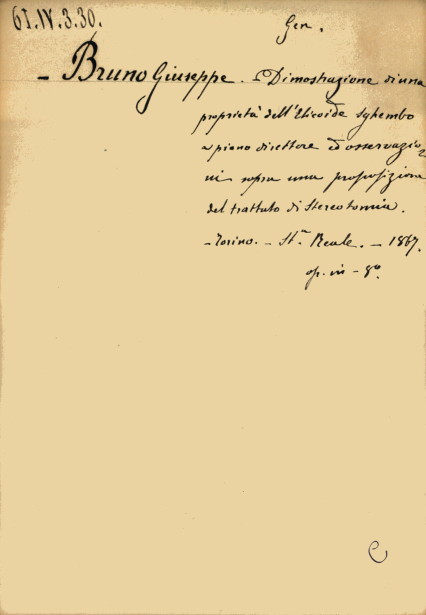 61.IV.3.30.
Gen.
– Bruno Giuseppe. – Dimostrazione di una
proprietà dell'Elicoide sghembo
a piano direttore ed osservazio-
ni sopra una proposizione
del trattato di Stereotomia.
– Torino. – St.ª Reale. – 1867.
op. in – 8º.
C